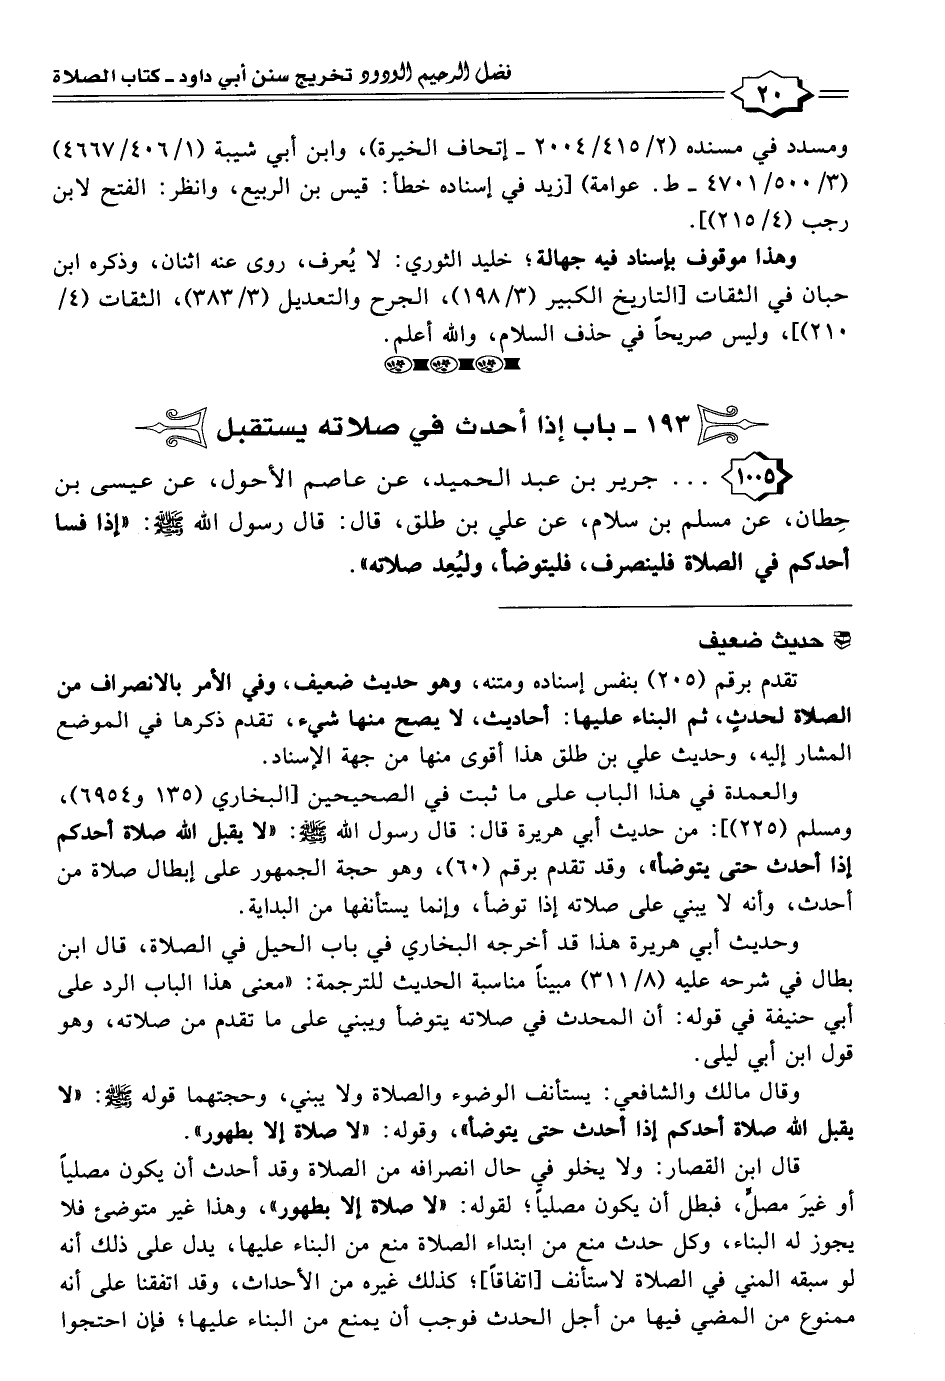 فضل الرحيم الودود تخريج سنن أبي داود ـ كتاب الصلاة
٢٠
ومسدد في مسنده (٢/ ٤١٥/ ٢٠٠٤ ـ إتحاف الخيرة)، وابن أبي شيبة (١/ ٤٠٦/ ٤٦٦٧)
(٣/ ٥٠٠/ ٤٧٠١ ـ ط. عوامة) [زيد في إسناده خطأ: قيس بن الربيع، وانظر: الفتح لابن
رجب (٤/ ٢١٥)].
وهذا موقوف بإسناد فيه جهالة؛ خليد الثوري: لا يُعرف، روى عنه اثنان، وذكره ابن
حبان في الثقات [التاريخ الكبير (٣/ ١٩٨)، الجرح والتعديل (٣/ ٣٨٣)، الثقات (٤/
٢١٠)]، وليس صريحاً في حذف السلام، والله أعلم.
١٩٣ ـ باب إذا أحدث في صلاته يستقبل
١٠٠٥ ... جرير بن عبد الحميد، عن عاصم الأحول، عن عيسى بن
حِطان، عن مسلم بن سلام، عن علي بن طلق، قال: قال رسول الله ﷺ: «إذا فسا
أحدكم في الصلاة فلينصرف، فليتوضأ، وليُعِد صلاته».
حديث ضعيف
تقدم برقم (٢٠٥) بنفس إسناده ومتنه، وهو حديث ضعيف، وفي الأمر بالانصراف من
الصلاة لحدثٍ، ثم البناء عليها: أحاديث، لا يصح منها شيء، تقدم ذكرها في الموضع
المشار إليه، وحديث علي بن طلق هذا أقوى منها من جهة الإسناد.
والعمدة في هذا الباب على ما ثبت في الصحيحين [البخاري (١٣٥ و٦٩٥٤)،
ومسلم (٢٢٥)]: من حديث أبي هريرة قال: قال رسول الله ﷺ: «لا يقبل الله صلاة أحدكم
إذا أحدث حتى يتوضأ»، وقد تقدم برقم (٦٠)، وهو حجة الجمهور على إبطال صلاة من
أحدث، وأنه لا يبني على صلاته إذا توضأ، وإنما يستأنفها من البداية.
وحديث أبي هريرة هذا قد أخرجه البخاري في باب الحيل في الصلاة، قال ابن
بطال في شرحه عليه (٨/ ٣١١) مبيناً مناسبة الحديث للترجمة: «معنى هذا الباب الرد على
أبي حنيفة في قوله: أن المحدث في صلاته يتوضأ ويبني على ما تقدم من صلاته، وهو
قول ابن أبي ليلى.
وقال مالك والشافعي: يستأنف الوضوء والصلاة ولا يبني، وحجتهما قوله ﷺ: «لا
يقبل الله صلاة أحدكم إذا أحدث حتى يتوضأ»، وقوله: «لا صلاة إلا بطهور».
قال ابن القصار: ولا يخلو في حال انصرافه من الصلاة وقد أحدث أن يكون مصلياً
أو غيرَ مصلٍّ، فبطل أن يكون مصلياً؛ لقوله: «لا صلاة إلا بطهور»، وهذا غير متوضئ فلا
يجوز له البناء، وكل حدث منع من ابتداء الصلاة منع من البناء عليها، يدل على ذلك أنه
لو سبقه المني في الصلاة لاستأنف [اتفاقاً]؛ كذلك غيره من الأحداث، وقد اتفقنا على أنه
ممنوع من المضي فيها من أجل الحدث فوجب أن يمنع من البناء عليها؛ فإن احتجوا